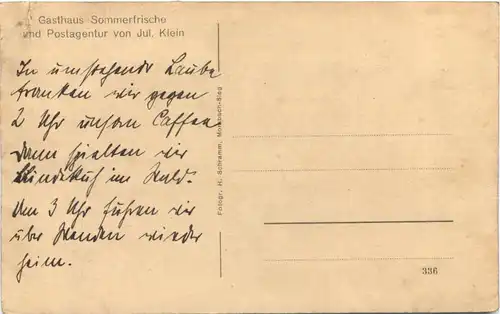 Gasthaus Sommerfrische
und Postagentur von Jul. Klein
In umstehender Laube
tranken wir gegen
2 Uhr unsern Caffee
Dann spielten wir
Blindekuh im Wald.
Um 3 Uhr fuhren wir
über Wenden wieder
heim.
Fotogr. H. Schramm, Morsbach-Sieg
336